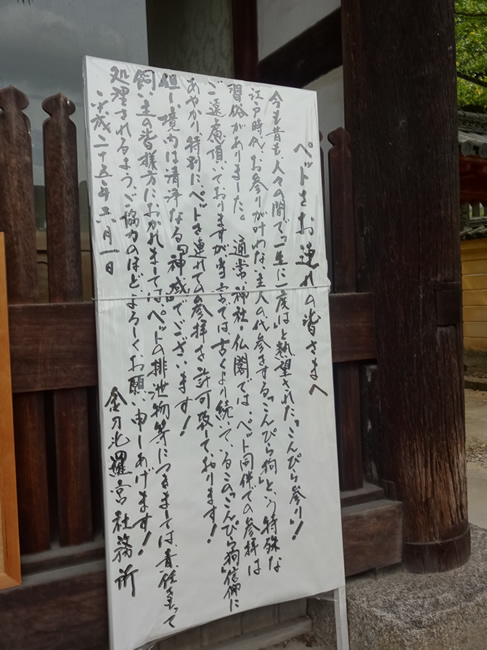 ペットをお連れの皆さまへ
今も昔も、人々の間で「一生に一度は」と熱望された、「こんぴら参り」！
江戸時代、お参りが叶わない主人の代参をする、「こんぴら狗」という特殊な
習俗がありました。通常、神社・仏閣では、ペット同伴での参拝は
ご遠慮頂いておりますが、当宮では古くより続いているこの「こんぴら狗」信仰に
あやかり、特別にペットを連れての参拝を許可致しております！
但し、境内は清浄なる『神域』でございます！
飼い主の皆様方におかれましては、ペットの排泄物等につきましては、責任をもって
処理されるよう、ご協力のほどよろしくお願い申しあげます！
平成二十五年五月一日
金刀比羅宮社務所